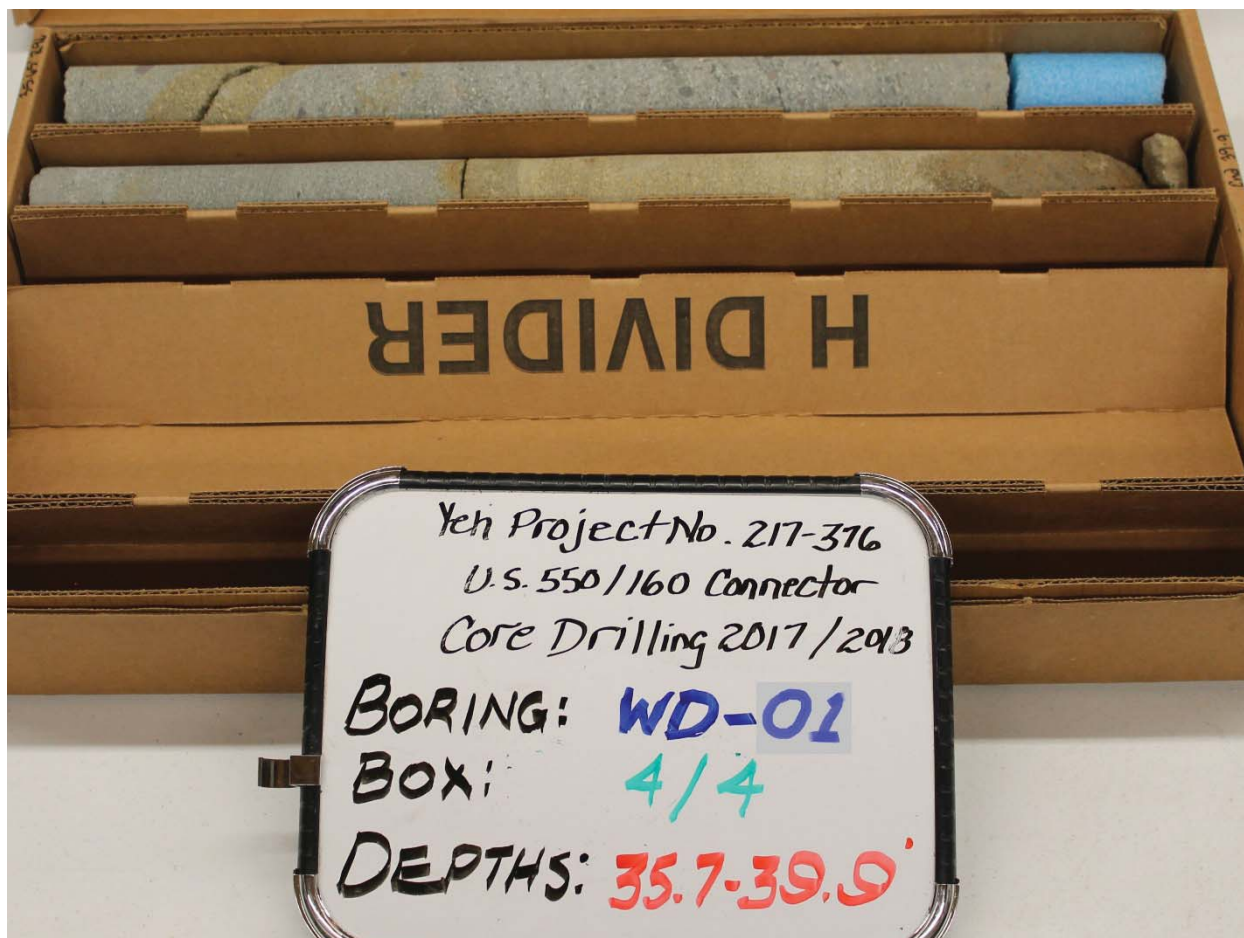 H DIVIDER
Yeh Project No. 217-376
U.S. 550/160 Connector
Core Drilling 2017/2018
BORING: WD-01
BOX: 4/4
DEPTHS: 35.7-39.9'